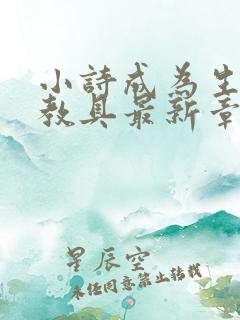 小詩成為生
教具最新章
星辰空
未经同意禁止转载